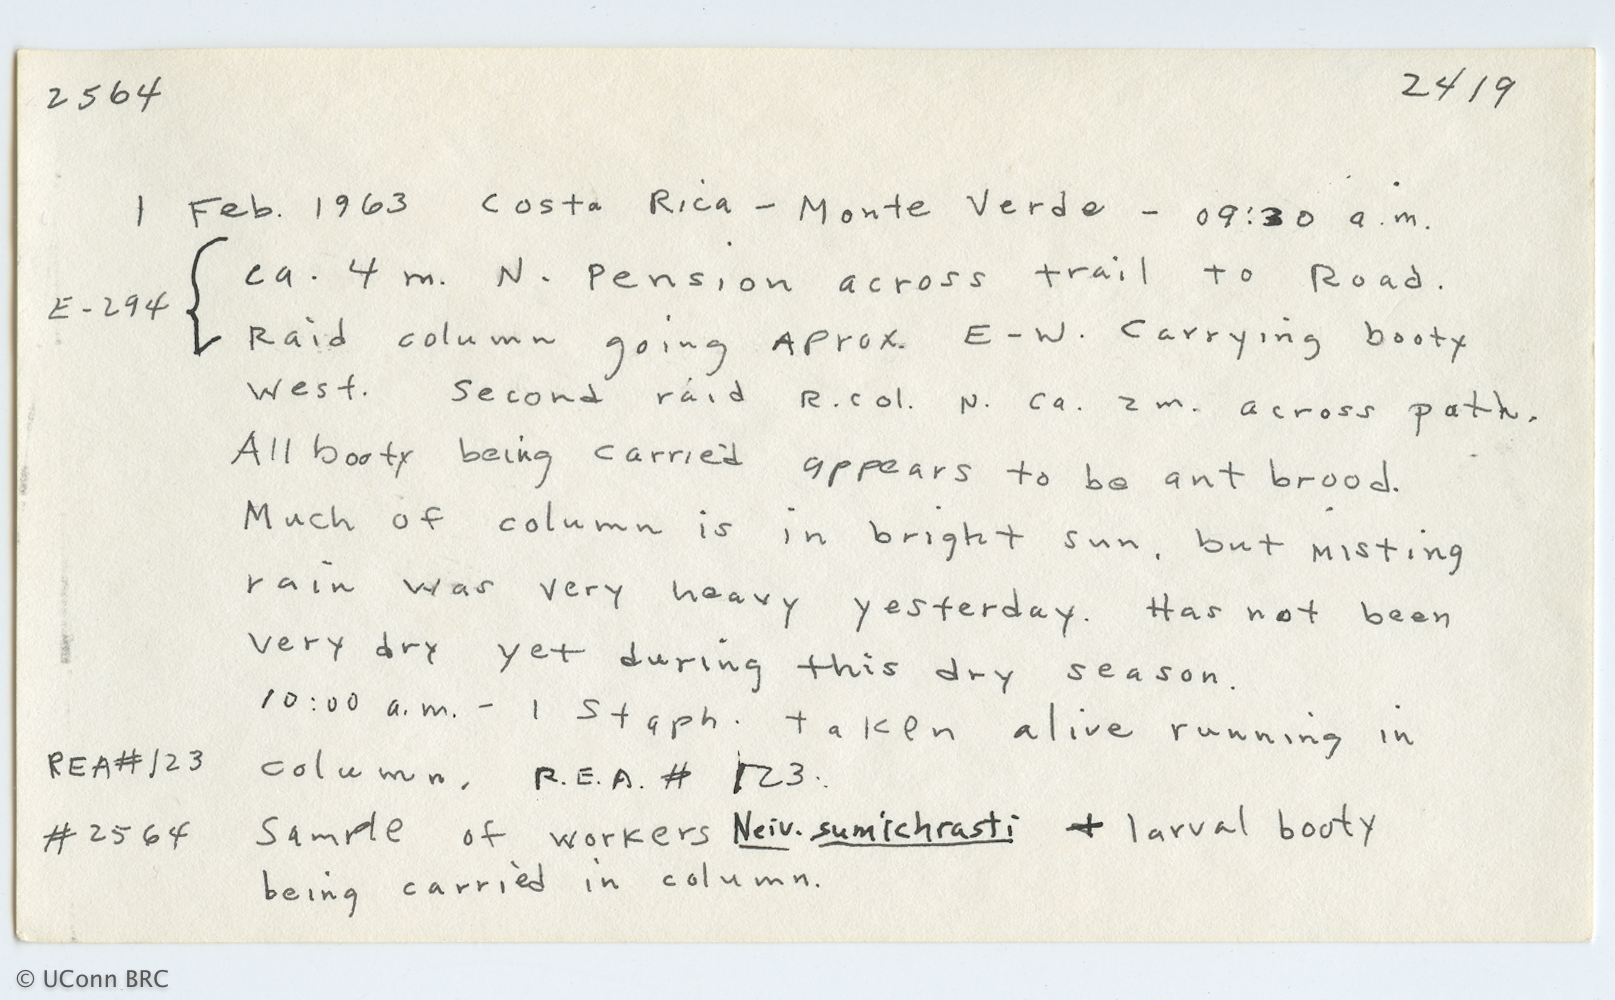 2564 2419
1 Feb. 1963 Costa Rica - Monte Verde - 09:30 a.m.
E-294 { ca. 4 m. N. Pension across trail to Road.
Raid column going Aprox. E-W. Carrying booty
West. Second raid R.col. N. ca. 2 m. across path.
All booty being carried appears to be ant brood.
Much of column is in bright sun, but misting
rain was very heavy yesterday. Has not been
very dry yet during this dry season.
10:00 a.m. - 1 Staph. taken alive running in
REA#123 column. R.E.A. # 123.
#2564 Sample of workers Neiv. sumichrasti + larval booty
being carried in column.
© UConn BRC